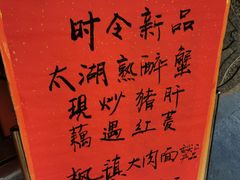 时令新品
太湖熟醉蟹
現炒猪肝
藕遇红菱
枫镇大肉面